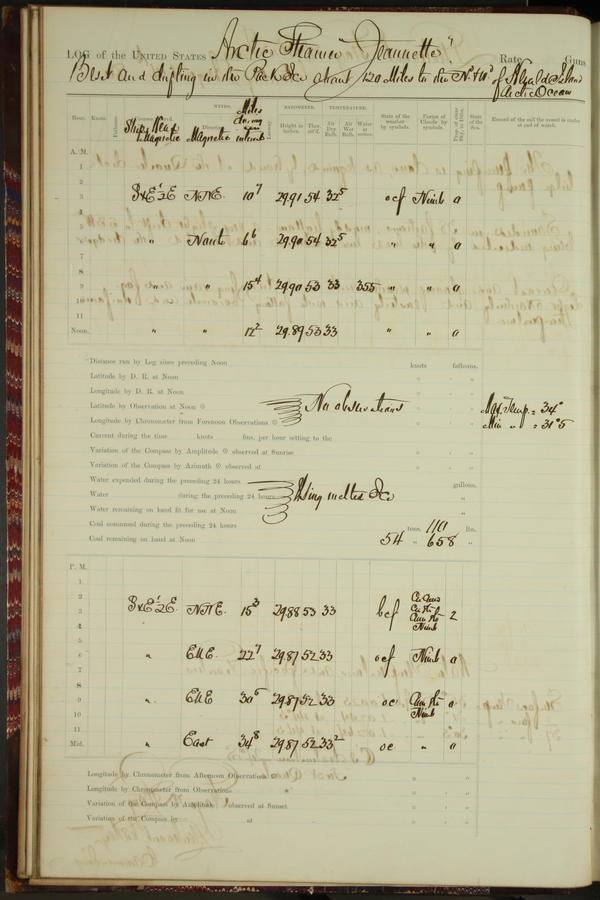 LOG of the UNITED STATES Arctic Steamer "Jeannette" Rate Guns
Beset and drifting in the Pack Ice about 120 Miles to the Nd + Wd of Herald Island
Arctic Ocean
Hour. Knots. Ship's Head Magnetic WINDS. Magnetic Miles during interval Leeway BAROMETER. Height in inches. Ther. att'd. TEMPERATURE. Air Dry Bulb. Air Wet Bulb. Water at surface. State of the weather by symbols. Forms of Clouds by symbols. Prop. of clear sky, in tenths. State of the Sea. Record of the sail the vessel is under at end of watch.
A. M.
1
2
3 SxE½E NNE. 10⁷ 29.91 54 32⁵ ocf Nimb o
4
5
6 " North 6⁶ 29.90 54 32⁵ " " o
7
8
9 " " 15⁴ 29.90 53 33 35.5 " " o
10
11
Noon. " " 12² 29.89 53 33 " " o
Distance run by Log since preceding Noon knots fathoms.
Latitude by D. R. at Noon ° ' "
Longitude by D. R. at Noon ° ' "
Latitude by Observation at Noon ⊙ No observations Max. Temp. = 34°
Longitude by Chronometer from Forenoon Observations ⊙ Min " = 31°5
Current during the time knots fms. per hour setting to the
Variation of the Compass by Amplitude ⊙ observed at Sunrise ° ' "
Variation of the Compass by Azimuth ⊙ observed at ° ' "
Water expended during the preceding 24 hours gallons.
Water during the preceding 24 hours Using melted Ice "
Water remaining on hand fit for use at Noon "
Coal consumed during the preceding 24 hours tons. 110 lbs.
Coal remaining on hand at Noon 54 " 658 "
P. M.
1
2
3 SxE½E. NNE. 15³ 29.88 53 33 bcf Nimb 2
4
5
6 " ENE. 22⁷ 29.87 52 33 ocf Nimb o
7
8
9 " ENE 30⁵ 29.87 52 33 oc Nimb o
10
11
Mid. " East 34⁸ 29.87 52 33² oc " o
Longitude by Chronometer from Afternoon Observations ° ' "
Longitude by Chronometer from Observations ° ' "
Variation of the Compass by Amplitude observed at Sunset ° ' "
Variation of the Compass by at ° ' "